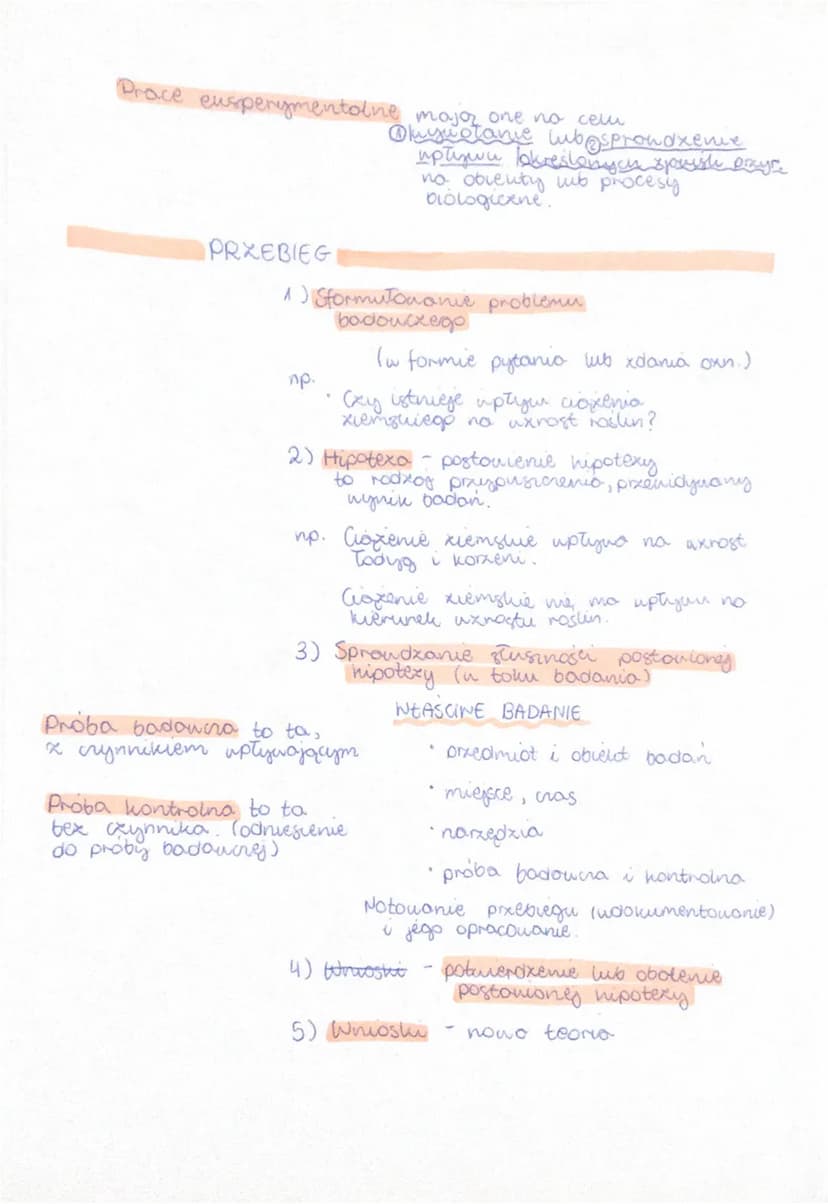 Prace eksperymentalne mają one na celu
① wywołanie lub ② sprawdzenie
wpływu określonych zjawisk przyr.
na obiekty lub procesy
biologiczne.
PRZEBIEG
1) Sformułowanie problemu
badawczego
(w formie pytania lub zdania ozn.)
np.
• Czy istnieje wpływ ciążenia
ziemskiego na wzrost roślin?
2) Hipoteza - postawienie hipotezy
to rodzaj przypuszczenia, przewidywany
wynik badań.
np. Ciążenie ziemskie wpływa na wzrost
łodyg i korzeni.
Ciążenie ziemskie nie ma wpływu na
kierunek wzrostu roślin.
3) Sprawdzanie słuszności postawionej
hipotezy (w toku badania)
WŁAŚCIWE BADANIE
Próba badawcza to ta,
z czynnikiem wpływającym
• przedmiot i obiekt badań
• miejsce, czas
Próba kontrolna to ta
bez czynnika. (odniesienie
do próby badawczej)
• narzędzia
• próba badawcza i kontrolna
Notowanie przebiegu (udokumentowanie)
i jego opracowanie.
4) Wnioski - potwierdzenie lub obalenie
postawionej hipotezy
5) Wnioski - nowa teoria